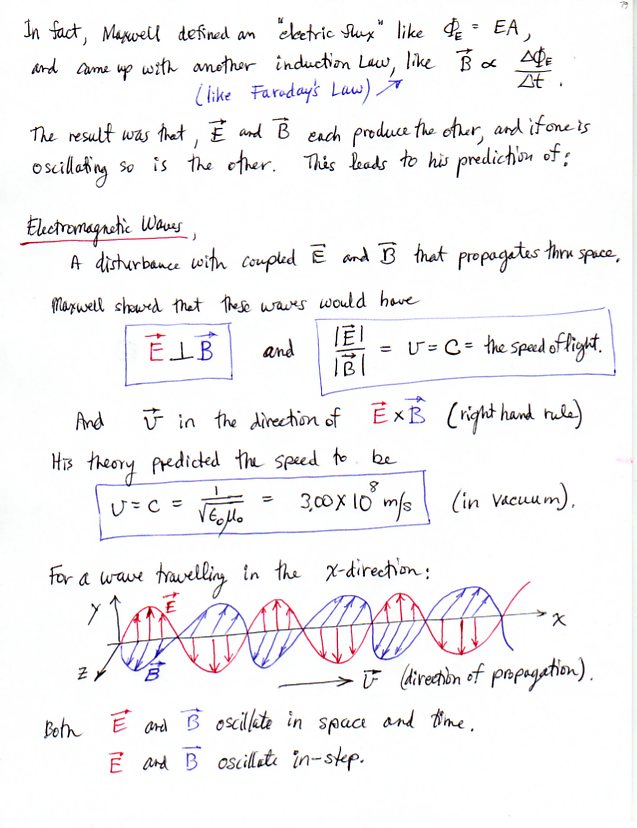 79
In fact, Maxwell defined an "electric flux" like Φ_E = EA,
and came up with another induction Law, like B⃗ ∝ ΔΦ_E/Δt.
(like Faraday's Law)
The result was that, E⃗ and B⃗ each produce the other, and if one is
oscillating so is the other. This leads to his prediction of:
Electromagnetic Waves,
A disturbance with coupled E⃗ and B⃗ that propagates thru space.
Maxwell showed that these waves would have
E⃗ ⊥ B⃗ and |E⃗|/|B⃗| = v = c = the speed of light.
And v⃗ in the direction of E⃗ × B⃗ (right hand rule)
His theory predicted the speed to be
v = c = 1/√ε₀μ₀ = 3.00 × 10⁸ m/s (in vacuum).
For a wave travelling in the x-direction:
y E⃗
x
z B⃗
v⃗ (direction of propagation).
Both E⃗ and B⃗ oscillate in space and time.
E⃗ and B⃗ oscillate in-step.